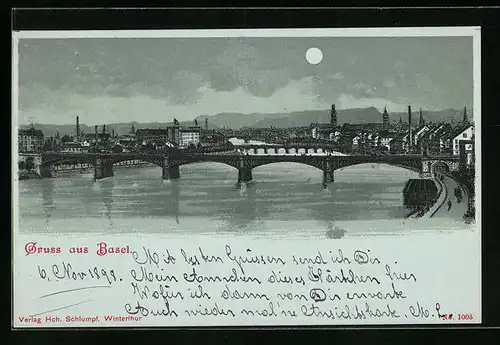 Gruss aus Basel.
Mit besten Grüssen send ich Dir
6. Nov 1898. Mein Annchen dieses Kärtchen hier
Wofür ich dann von Dir erwarte
Auch wieder mal ne Ansichtskarte.
Verlag Hch. Schlumpf, Winterthur
No. 1003